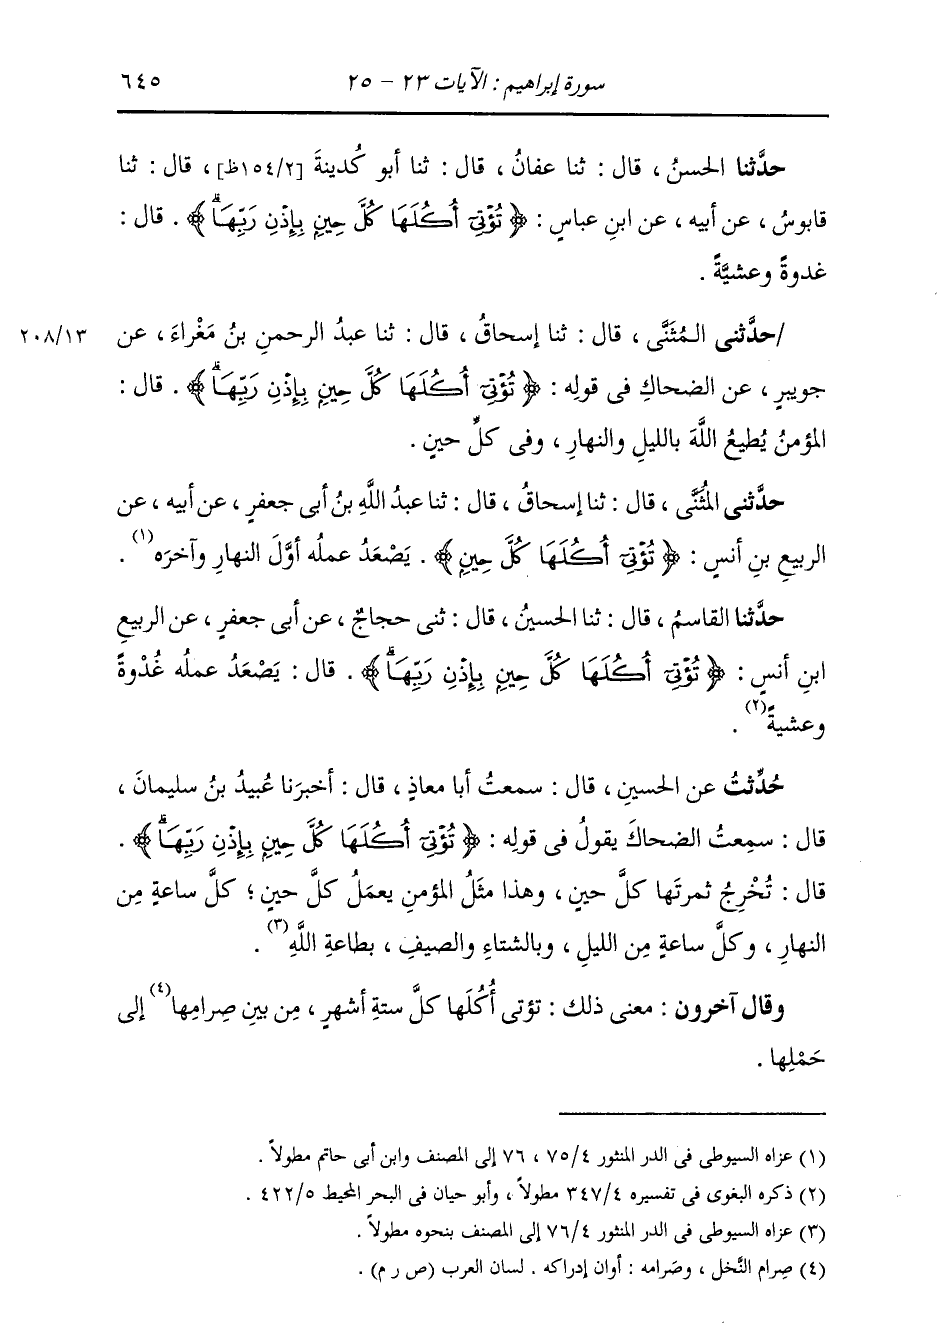 سورة إبراهيم : الآيات ٢٣ - ٢٥
٦٤٥
حدَّثنا الحسنُ ، قال : ثنا عفانُ ، قال : ثنا أبو كُدينةَ [١٥٤/٢ظ] ، قال : ثنا
قابوسُ ، عن أبيه ، عن ابنِ عباسٍ : ﴿ تُؤْتِيٓ أُكُلَهَا كُلَّ حِينٍ بِإِذْنِ رَبِّهَاۗ ﴾ . قال :
غدوةً وعشيَّةً .
/حدَّثنى المُثَنَّى ، قال : ثنا إسحاقُ ، قال : ثنا عبدُ الرحمنِ بنُ مَغْراءَ ، عن
٢٠٨/١٣
جويبرٍ ، عن الضحاكِ فى قولِه : ﴿ تُؤْتِيٓ أُكُلَهَا كُلَّ حِينٍ بِإِذْنِ رَبِّهَاۗ ﴾ . قال :
المؤمنُ يُطيعُ اللَّهَ بالليلِ والنهارِ ، وفى كلِّ حينٍ .
حدَّثنى المُثَنَّى ، قال : ثنا إسحاقُ ، قال : ثنا عبدُ اللَّهِ بنُ أبى جعفرٍ ، عن أبيه ، عن
الربيعِ بنِ أنسٍ : ﴿ تُؤْتِيٓ أُكُلَهَا كُلَّ حِينٍ ﴾ . يَصْعَدُ عملُه أوَّلَ النهارِ وآخرَه(١) .
حدَّثنا القاسمُ ، قال : ثنا الحسينُ ، قال : ثنى حجاجٌ ، عن أبى جعفرٍ ، عن الربيعِ
ابنِ أنسٍ : ﴿ تُؤْتِيٓ أُكُلَهَا كُلَّ حِينٍ بِإِذْنِ رَبِّهَاۗ ﴾ . قال : يَصْعَدُ عملُه غُدْوةً
وعشيةً(٢) .
حُدِّثتُ عن الحسينِ ، قال : سمعتُ أبا معاذٍ ، قال : أخبرَنا عُبيدُ بنُ سليمانَ ،
قال : سمِعتُ الضحاكَ يقولُ فى قولِه : ﴿ تُؤْتِيٓ أُكُلَهَا كُلَّ حِينٍ بِإِذْنِ رَبِّهَاۗ ﴾ .
قال : تُخْرِجُ ثمرتَها كلَّ حينٍ ، وهذا مثَلُ المؤمنِ يعمَلُ كلَّ حينٍ ؛ كلَّ ساعةٍ مِن
النهارِ ، وكلَّ ساعةٍ مِن الليلِ ، وبالشتاءِ والصيفِ ، بطاعةِ اللَّهِ(٣) .
وقال آخرون : معنى ذلك : تؤتى أُكُلَها كلَّ ستةِ أشهرٍ ، مِن بينِ صِرامِها(٤) إلى
حَمْلِها .
(١) عزاه السيوطى فى الدر المنثور ٧٥/٤ ، ٧٦ إلى المصنف وابن أبى حاتم مطولاً .
(٢) ذكره البغوى فى تفسيره ٣٤٧/٤ مطولاً ، وأبو حيان فى البحر المحيط ٤٢٢/٥ .
(٣) عزاه السيوطى فى الدر المنثور ٧٦/٤ إلى المصنف بنحوه مطولاً .
(٤) صِرام النَّخل ، وصَرامه : أوان إدراكه . لسان العرب (ص ر م) .